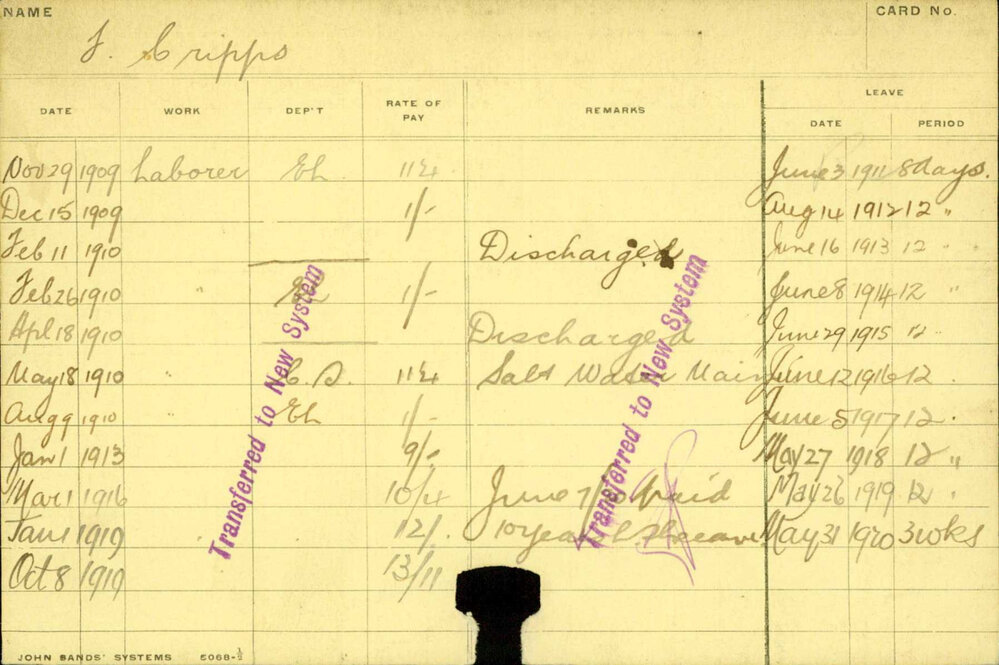 NAME
CARD No.
F. Cripps
DATE WORK DEP'T RATE OF PAY REMARKS LEAVE
DATE PERIOD
Nov 29 1909 Laborer Eh June 3 1911 8 days.
Dec 15 1909 1/- Aug 14 1912 12 "
Feb 11 1910 Discharged June 16 1913 12 "
Feb 26 1910 " Eh 1/- June 8 1914 12 "
Apl 18 1910 Discharged June 29 1915 12
May 18 1910 " Salt Water Main June 12 1916 12
Aug 9 1910 Eh 1/- June 5 1917 12 "
Jan 1 1913 9/- May 27 1918 12 "
Mar 1 1916 10/4 June paid May 26 1919 12 "
Jan 1 1919 12/. 10 years May 31 1920 3 wks
Oct 8 1919 13/11
Transferred to New System
Transferred to New System
JOHN SANDS' SYSTEMS 5068-½